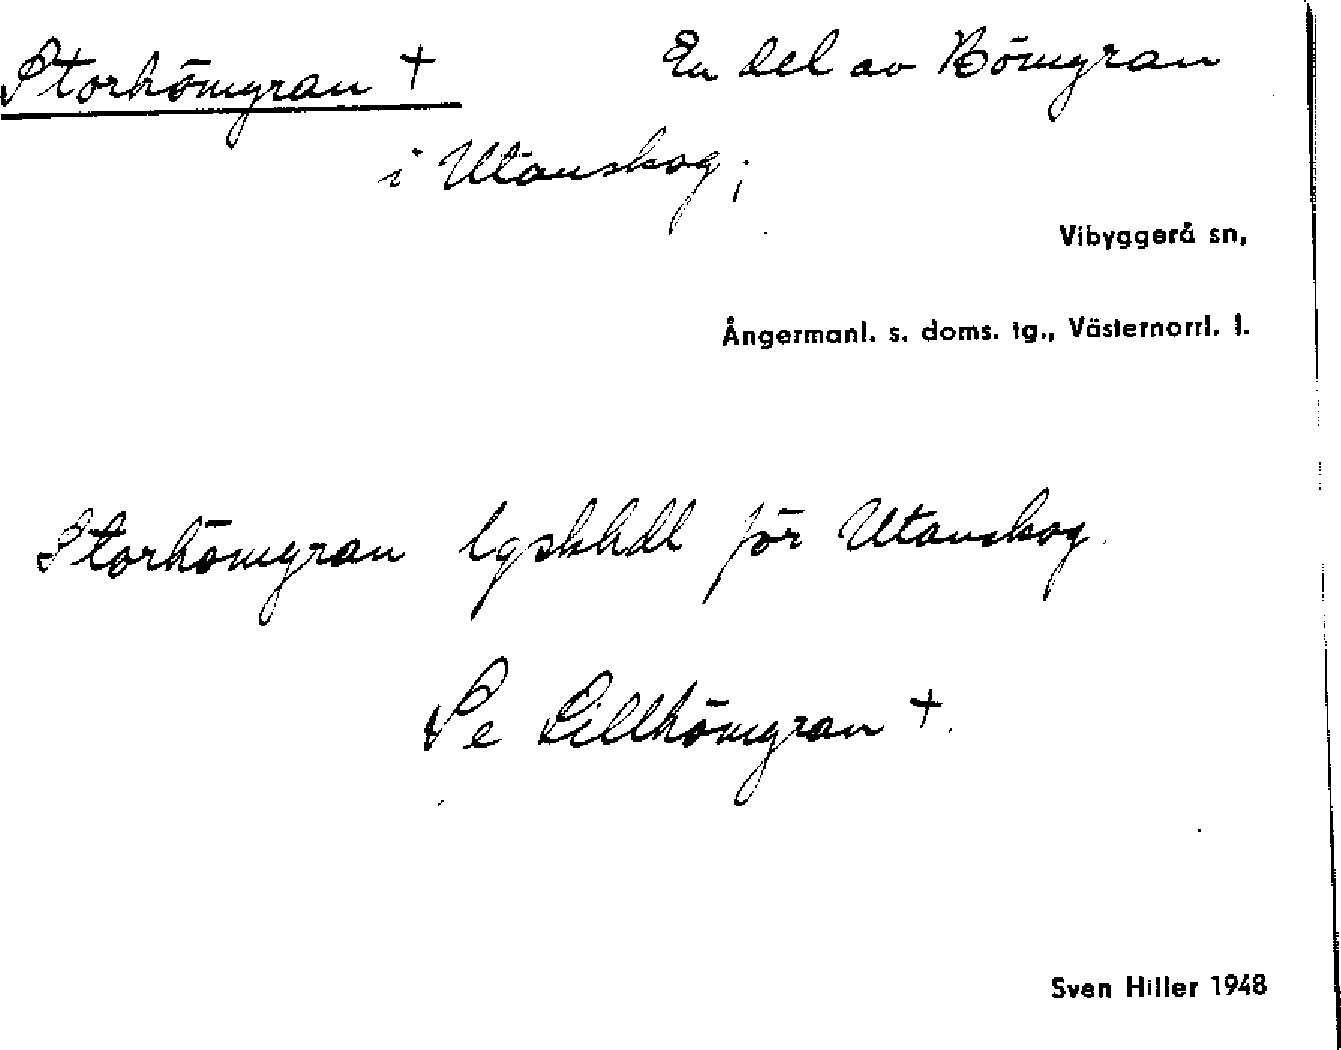 Storhömyran + En del av Bömyran
i Utanskog;
Vibyggerå sn,
Ångermanl. s. doms. tg., Västernorrl. l.
Storhömyran lgskhdl för Utanskog.
Se Lillhömyran +.
Sven Hiller 1948